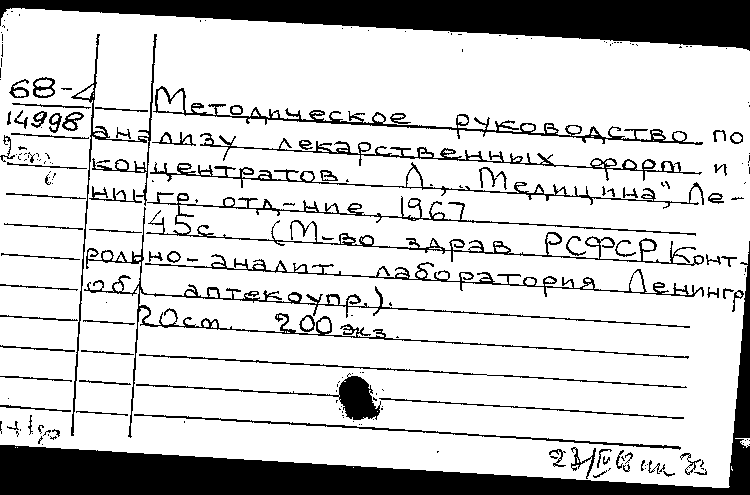 68-4
14998
Методическое руководство по
анализу лекарственных форм и
концентратов. Л., "Медицина", Ле-
нингр. отд-ние, 1967
45с. (М-во здрав. РСФСР. Конт-
рольно-аналит. лаборатория Ленингр
обл. аптекоупр.).
20см. 200 экз.